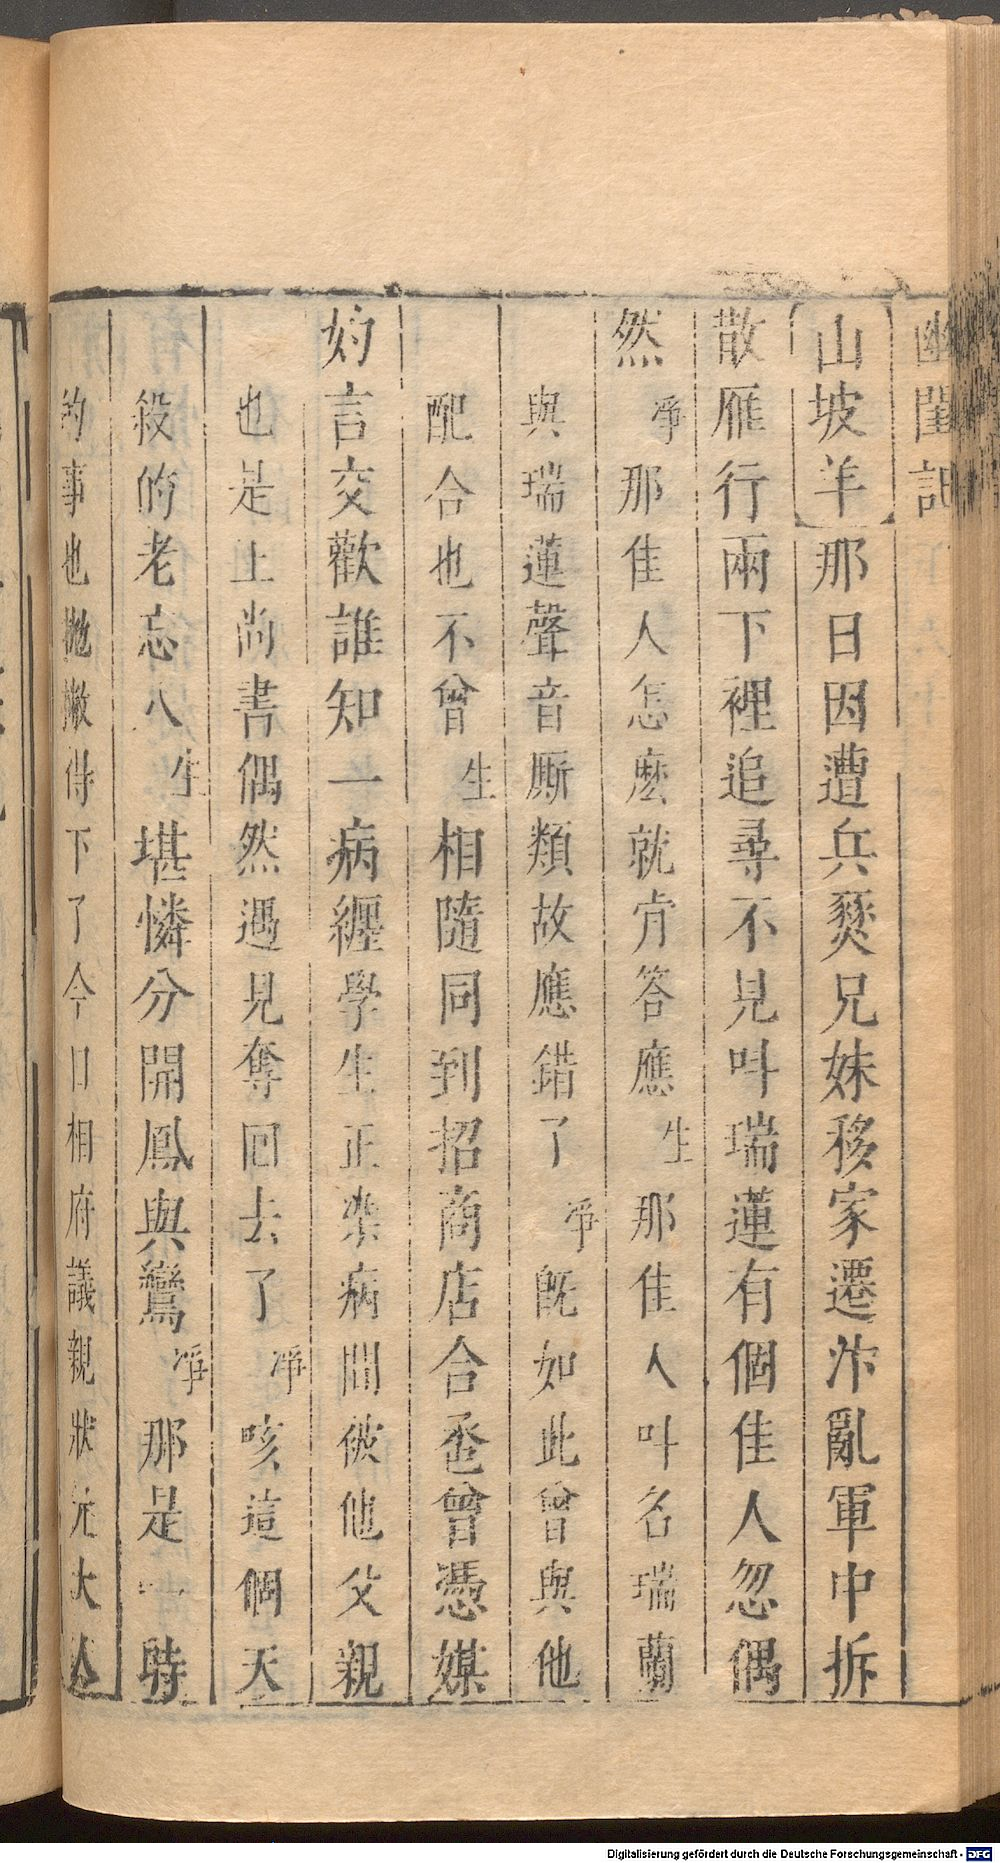 幽閨記
【山坡羊】那日因遭兵燹兄妹移家遷汴亂軍中拆
散雁行兩下裡追尋不見叫瑞蓮有個佳人忽偶
然淨那佳人怎麽就肯答應生那佳人叫名瑞蘭
與瑞蓮聲音厮類故應錯了淨旣如此曾與他
配合也不曾生相隨同到招商店合卺曾憑媒
妁言交歡誰知一病纒學生正染病間彼他父親
也是上尚書偶然遇見奪回去了淨咳這個天
殺的老忘八生堪憐分開鳳與鸞淨那是一時
的事也抛撇得下了今日相府議親狀元大人
Digitalisierung gefördert durch die Deutsche Forschungsgemeinschaft - DFG